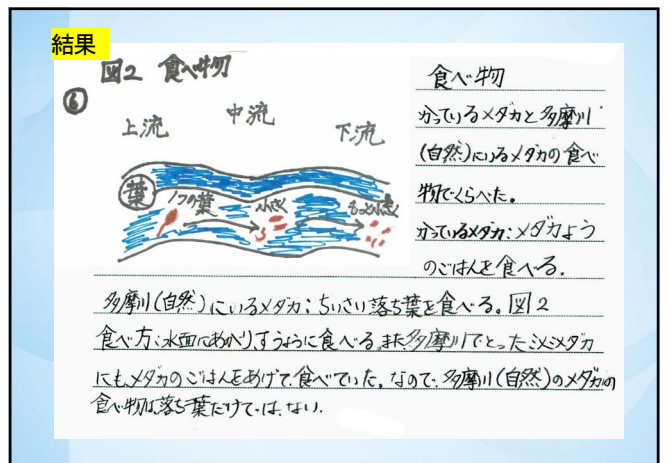 結果
図2 食べ物
⑥
上流 中流 下流
葉
1つの葉 小さく もっと小さく
食べ物
かっているメダカと多摩川
(自然)にいるメダカの食べ
物でくらべた。
かっているメダカ:メダカよう
のごはんを食べる。
多摩川(自然)にいるメダカ:ちいさい落ち葉を食べる。図2
食べ方:水面にあがり、すうように食べる。また多摩川でとった
にもメダカのごはんをあげて、食べていた。なので、多摩川(自然)のメダカの
食べ物は落ち葉だけでは、ない。